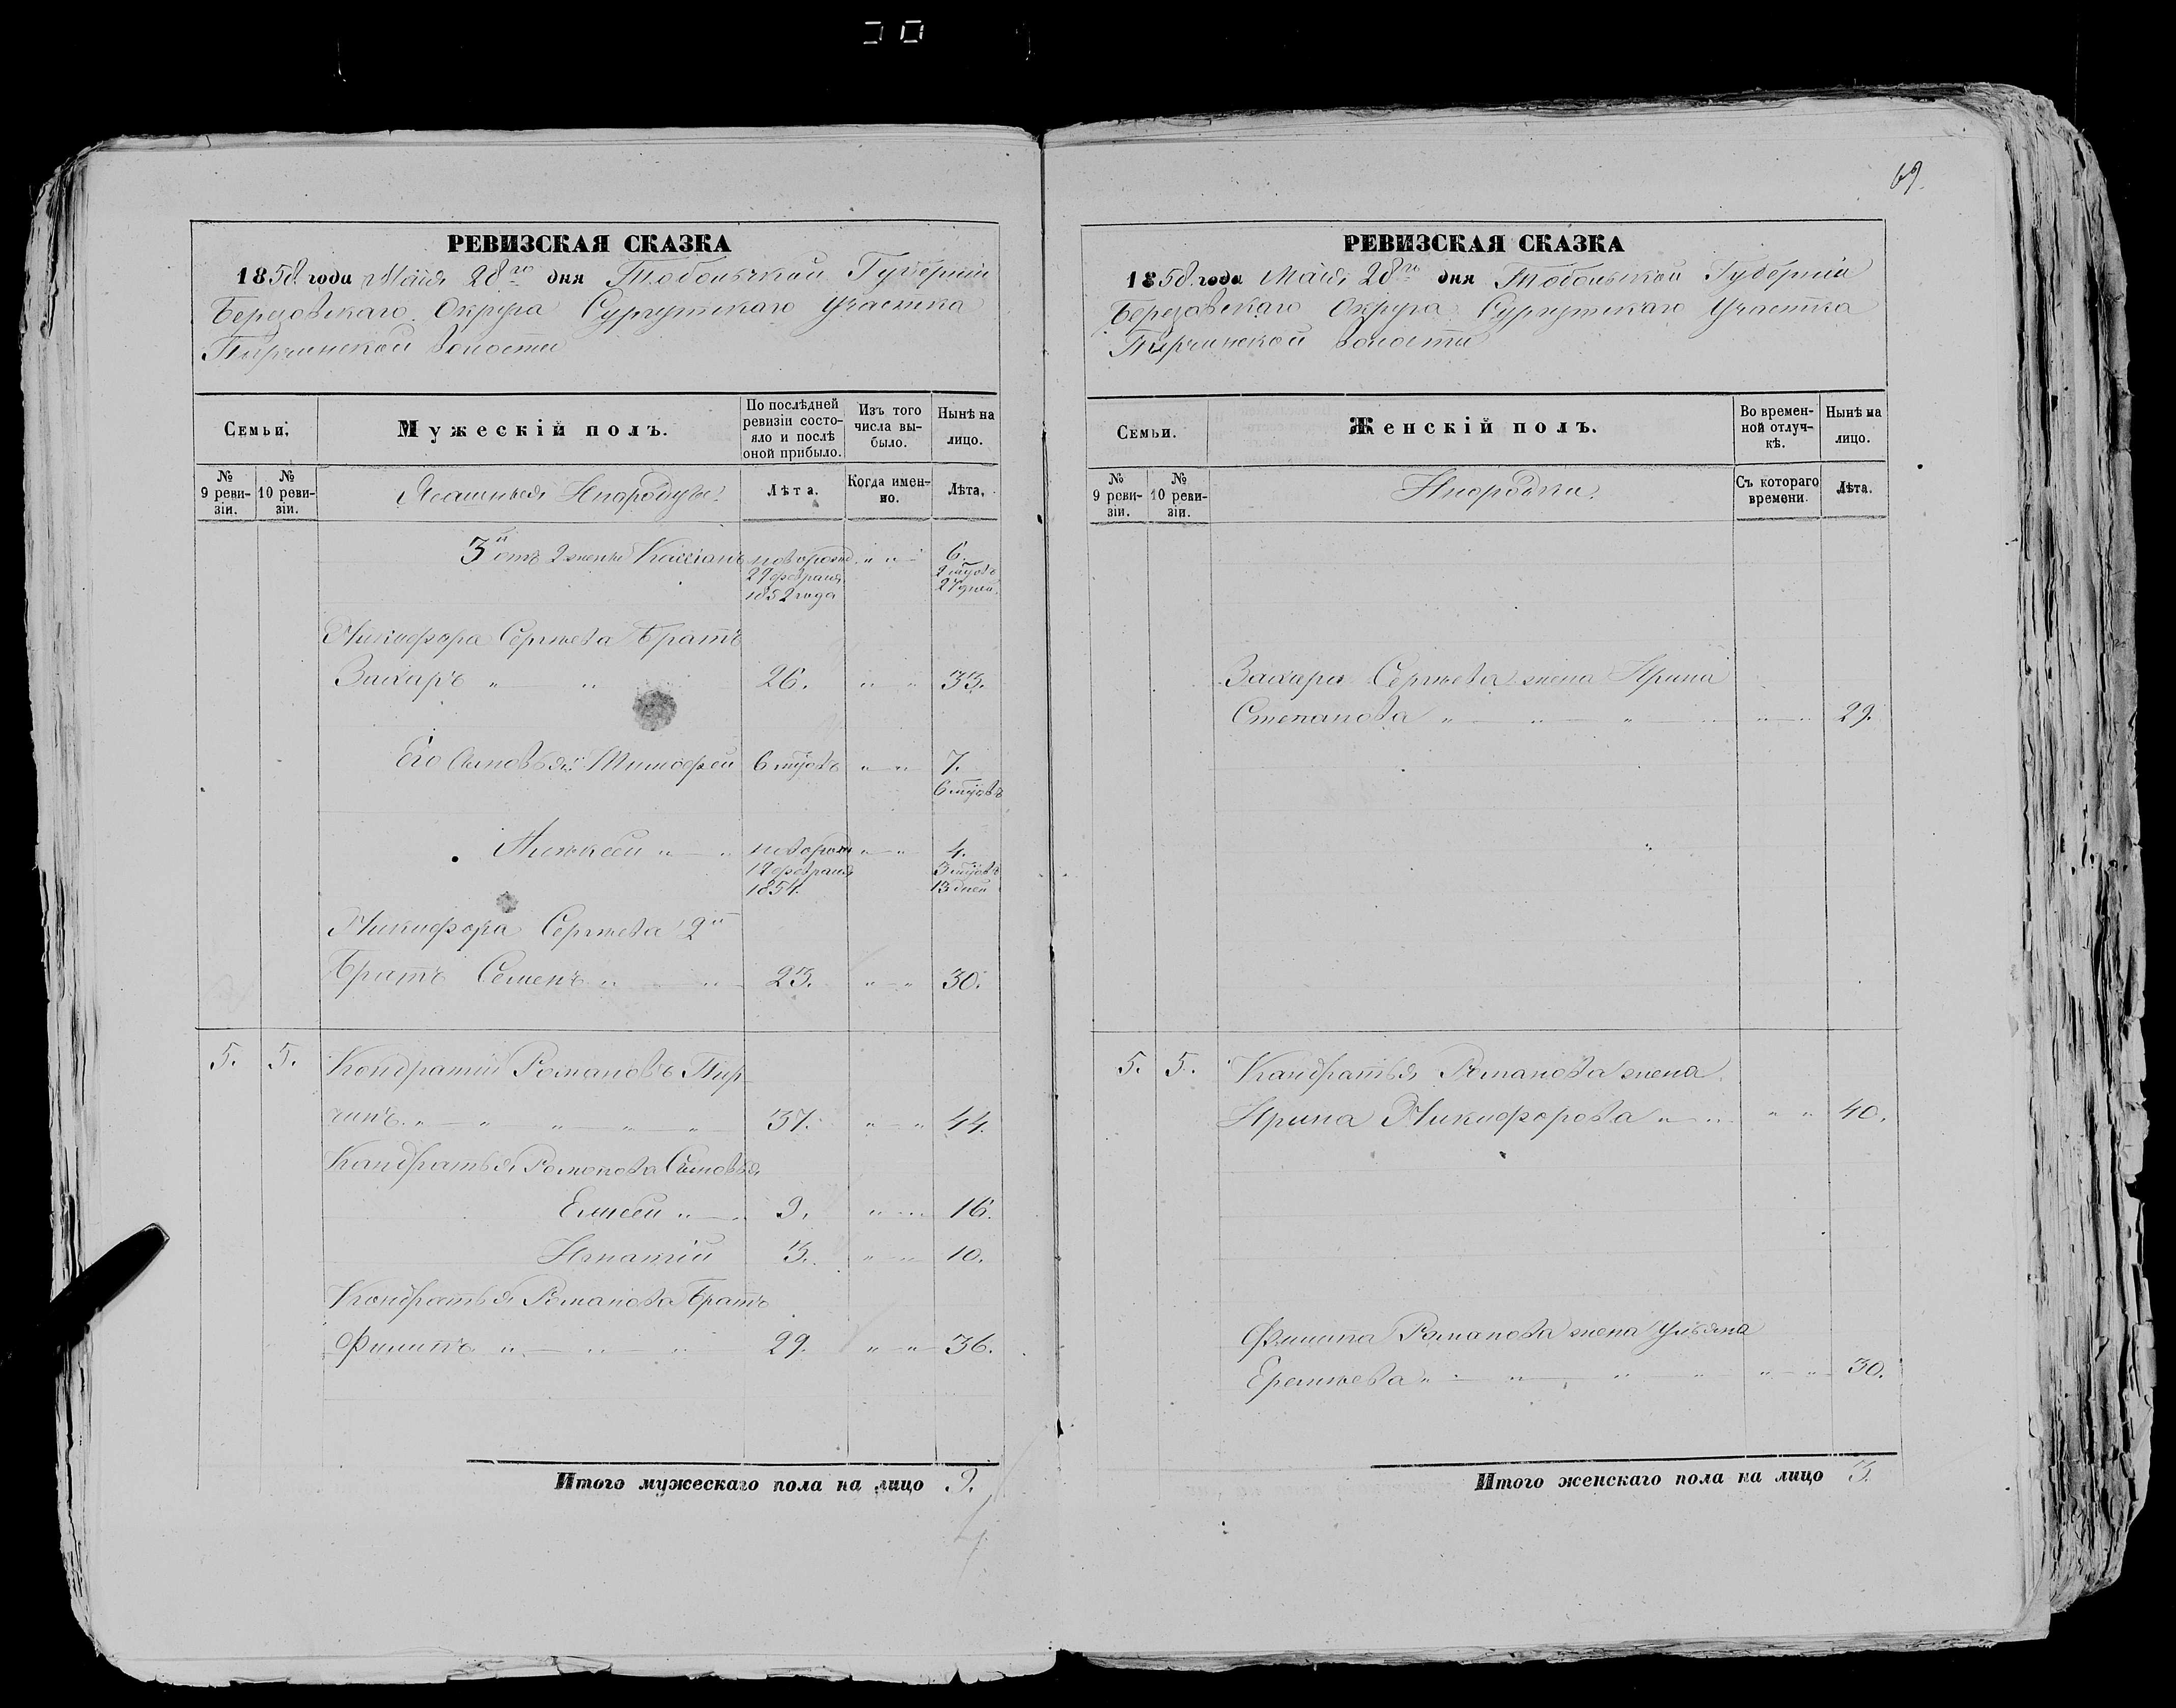 69.
РЕВИЗСКАЯ СКАЗКА
1858. года Маія 28го дня Тобольской Губерніи
Березовскаго Округа Сургутскаго Участка
Пирчинской волости
Семьи.
Мужескій полъ.
По послѣдней ревизіи состояло и послѣ оной прибыло.
Изъ того числа выбыло.
Нынѣ на лицо.
№ 9 ревизіи.
№ 10 ревизіи.
Ясашныя Инородцы.
Лѣта.
Когда именно.
Лѣта.
3й отъ 2 жены Кассіанъ новорожд " " 6.
29 февраля 2 мѣсяцъ
1852 года 27 дней
Никифора Сергѣева Братъ
Захаръ " " 26. " " 33.
Его Сыновья: Тимофей 6 мцовъ " " 7.
6 мцовъ
Алексей " " новорож " " 4.
12 февраля 3 мцовъ
1854. 13 дней
Никифора Сергѣева 2й
Братъ Семенъ " " 23. " " 30.
5. 5. Кондратій Романовъ Пир
чинъ. " " " " " 37. " " 44.
Кандратья Романова Сыновья
Елисей " " 9. " " 16.
Игнатій 3. " " 10.
Кондратья Романова Братъ
Филипъ " " " 29. " " 36.
Итого мужескаго пола на лицо 9.
РЕВИЗСКАЯ СКАЗКА
1858. года Маія 28го дня Тобольской Губерніи
Березовскаго Округа Сургутскаго Участка
Пирчинской волости
Семьи.
Женскій полъ.
Во временной отлучкѣ.
Нынѣ на лицо.
№ 9 ревизіи.
№ 10 ревизіи.
Инородки.
Съ котораго времени.
Лѣта.
Захара Сергѣева жена Ирина
Степанова " " " " " " 29.
5. 5. Кандратья Романова жена
Ирина Никифорова " " " " 40.
Филипа Романова жена Ульяна
Еремѣева " " " " " " 30.
Итого женскаго пола на лицо 3.